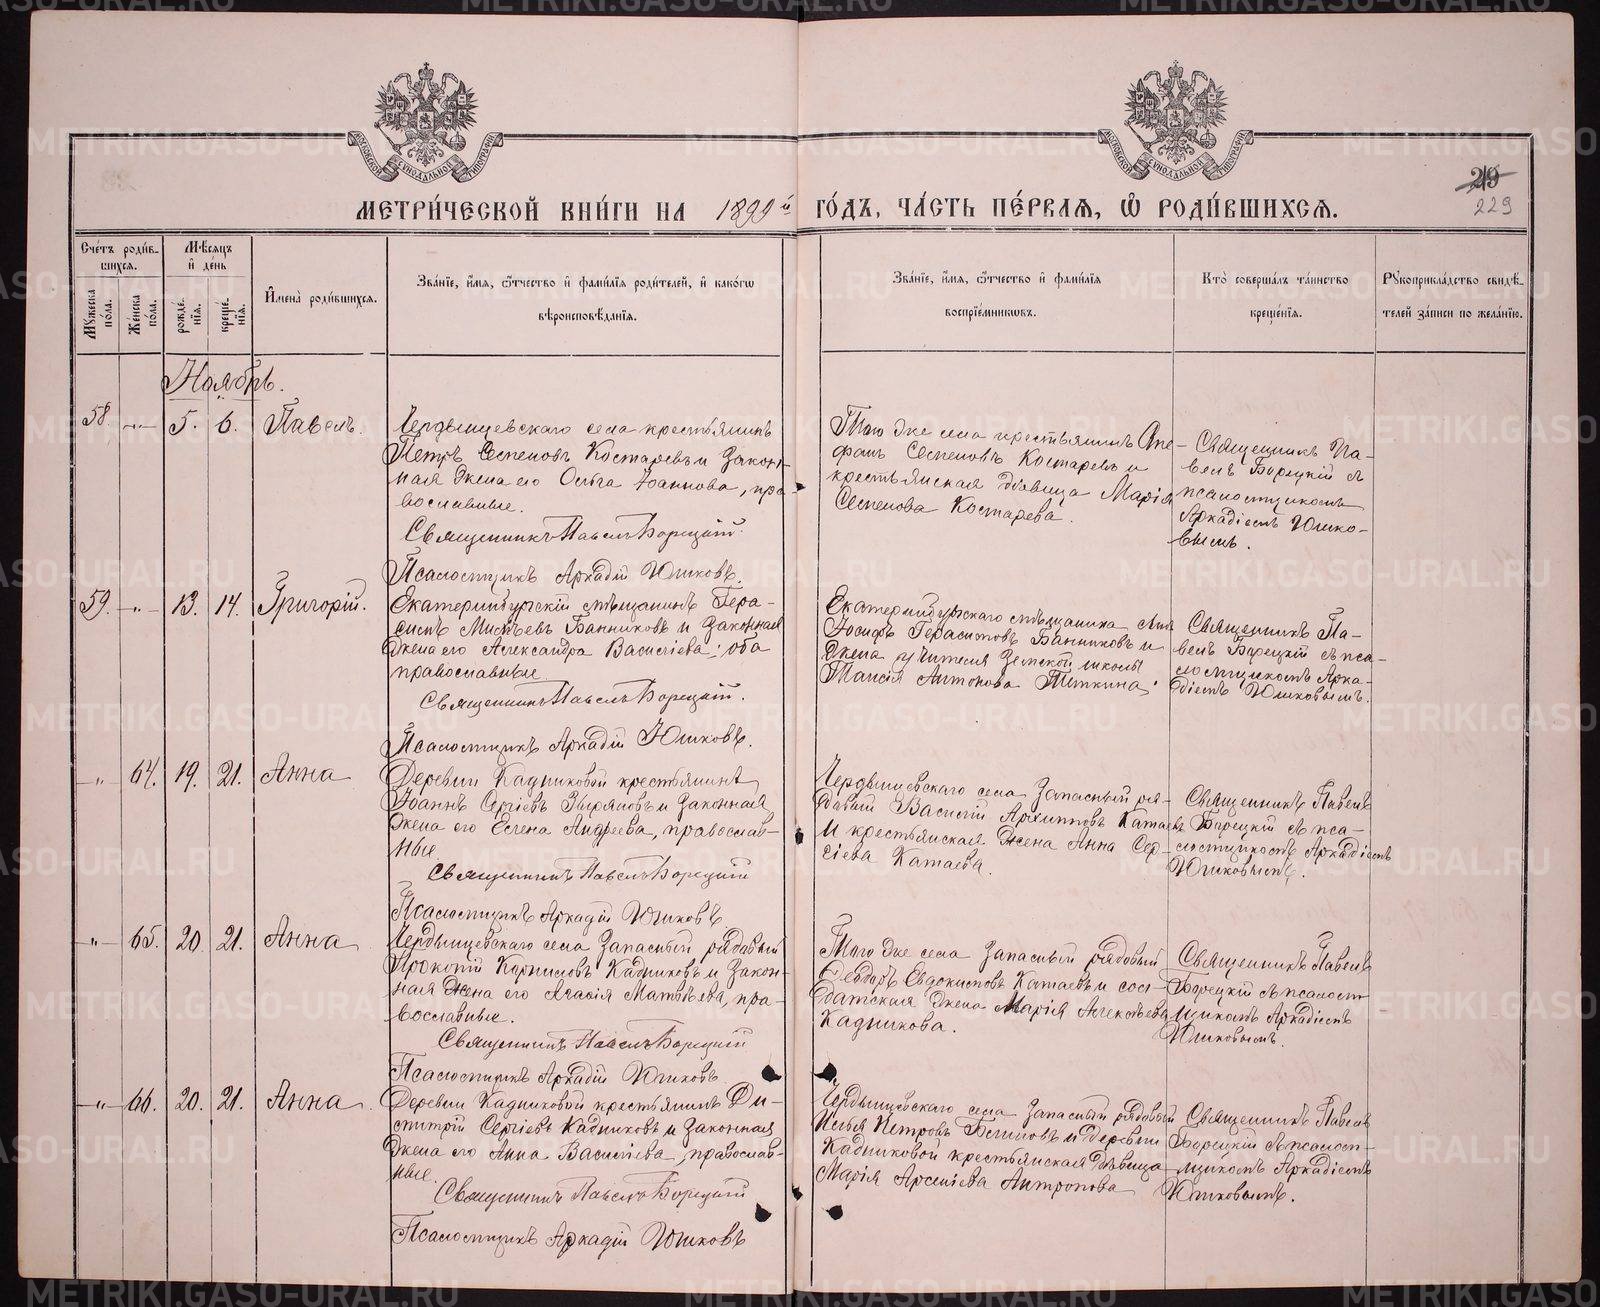 МОСКОВСКОЙ СѴНОДАЛЬНОЙ ТИПОГРАФІИ
МОСКОВСКОЙ СѴНОДАЛЬНОЙ ТИПОГРАФІИ
МЕТРИ́ЧЕСКОЙ КНИ́ГИ НА 1899й ГО́ДЪ, ЧА́СТЬ ПЕ́РВАЯ, Ѽ РОДИ́ВШИХСЯ.
219
229
Сче́тъ роди́в-
шихся.
Мѣ́сяцъ
и҆ де́нь
Му́жеска
по́ла.
Же́нска
по́ла.
рожде́-
нїя.
креще́-
нїя.
И҆мена̀ роди́вшихся.
Зва́нїе, и҆́мя, ѻ҆́тчество и҆ фами́лїя роди́телей, и҆ како́гѡ
вѣроисповѣ́данїя.
Зва́нїе, и҆́мя, ѻ҆́тчество и҆ фами́лїя
воспрїе́мниковъ.
Кто̀ соверша́лъ та́инство
креще́нїя.
Рꙋкоприкла́дство свидѣ́-
телей за́писи по жела́нїю.
Ноябрь.
58. -"- 5. 6. Павелъ.
Чердынцевскаго села крестьянинъ
Петръ Семеновъ Костаревъ и закон-
ная жена его Ольга Иоаннова, пра-
вославные.
Священникъ Павелъ Борецкій
Псаломщикъ Аркадій Юшковъ.
Того же села крестьянинъ Сте-
фанъ Семеновъ Костаревъ и
крестьянская дѣвица Марія
Семенова Костарева.
Священникъ Па-
велъ Борецкій съ
псаломщикомъ
Аркадіемъ Юшко-
вымъ.
59. -"- 13. 14. Григорій.
Екатеринбургскій мѣщанинъ Гера-
симъ Банниковъ и законная
жена его Александра Василіева; оба
православные
Священникъ Павелъ Борецкій.
Псаломщикъ Аркадій Юшковъ.
Екатеринбургскаго мѣщанина сынъ
Іосифъ Герасимовъ Банниковъ и
жена учителя Земской школы
Таисія Антонова
Священникъ Па-
велъ Борецкій съ пса-
ломщикомъ Арка-
діемъ Юшковымъ.
-"- 64. 19. 21. Анна
Деревни Кадниковой крестьянинъ
Іоаннъ Сергіевъ Зыряновъ и законная
жена его Елена Андреева, православ-
ные
Священникъ Павелъ Борецкій
Псаломщикъ Аркадій Юшковъ
Чердынцевскаго села запасный ря-
довый Василій Архиповъ Катаевъ
и крестьянская жена Анна Сер-
гіева Катаева.
Священникъ Павелъ
Борецкій съ пса-
ломщикомъ Аркадіемъ
Юшковымъ.
-"- 65. 20. 21. Анна
Чердынцевскаго села запасный рядовый
Прокопій Корниловъ Кадниковъ и закон-
ная жена его Агафія Матвѣева, пра-
вославные.
Священникъ Павелъ Борецкій
Псаломщикъ Аркадій Юшковъ
Того же села запасный рядовый
Ѳеодоръ Евдокимовъ Катаевъ и сол-
датская жена Марія Алексѣева
Кадникова.
Священникъ Павелъ
Борецкій съ псалом-
щикомъ Аркадіемъ
Юшковымъ.
-"- 66. 20. 21. Анна.
Деревни Кадниковой крестьянинъ Ди-
митрій Сергіевъ Кадниковъ и законная
жена его Анна Василіева, православ-
ные.
Священникъ Павелъ Борецкій
Псаломщикъ Аркадій Юшковъ
Чердынцевскаго села запасный рядовый
Илья Петровъ и деревни
Кадниковой крестьянская дѣвица
Марія Арсеніева Антропова
Священникъ Павелъ
Борецкій съ псалом-
щикомъ Аркадіемъ
Юшковымъ.
METRIKI.GASO-URAL.RU